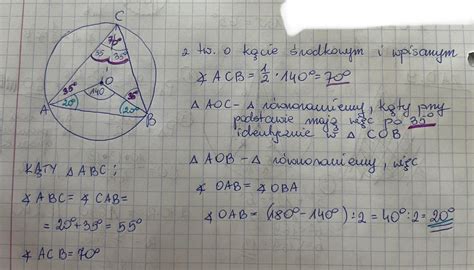 C
70°
35 35°
O
35° 140 35°
A 20° 20° B
z tw. o kącie środkowym i wpisanym
∢ ACB = 1/2 · 140° = 70°
△ AOC - △ równoramienny, kąty przy
podstawie mają więc po 35°
identycznie w △ COB
△ AOB - △ równoramienny, więc
∢ OAB = ∢ OBA
∢ OAB = (180° - 140°) : 2 = 40° : 2 = 20°
KĄTY △ABC:
∢ ABC = ∢ CAB =
= 20° + 35° = 55°
∢ ACB = 70°